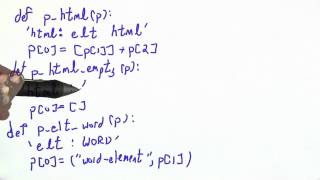 def p_html(p):
'html : elt html'
p[0] = [p[1]] + p[2]
def p_html_empty(p):
'
p[0] = []
def p_elt_word(p):
'elt : WORD'
p[0] = ("word-element", p[1])